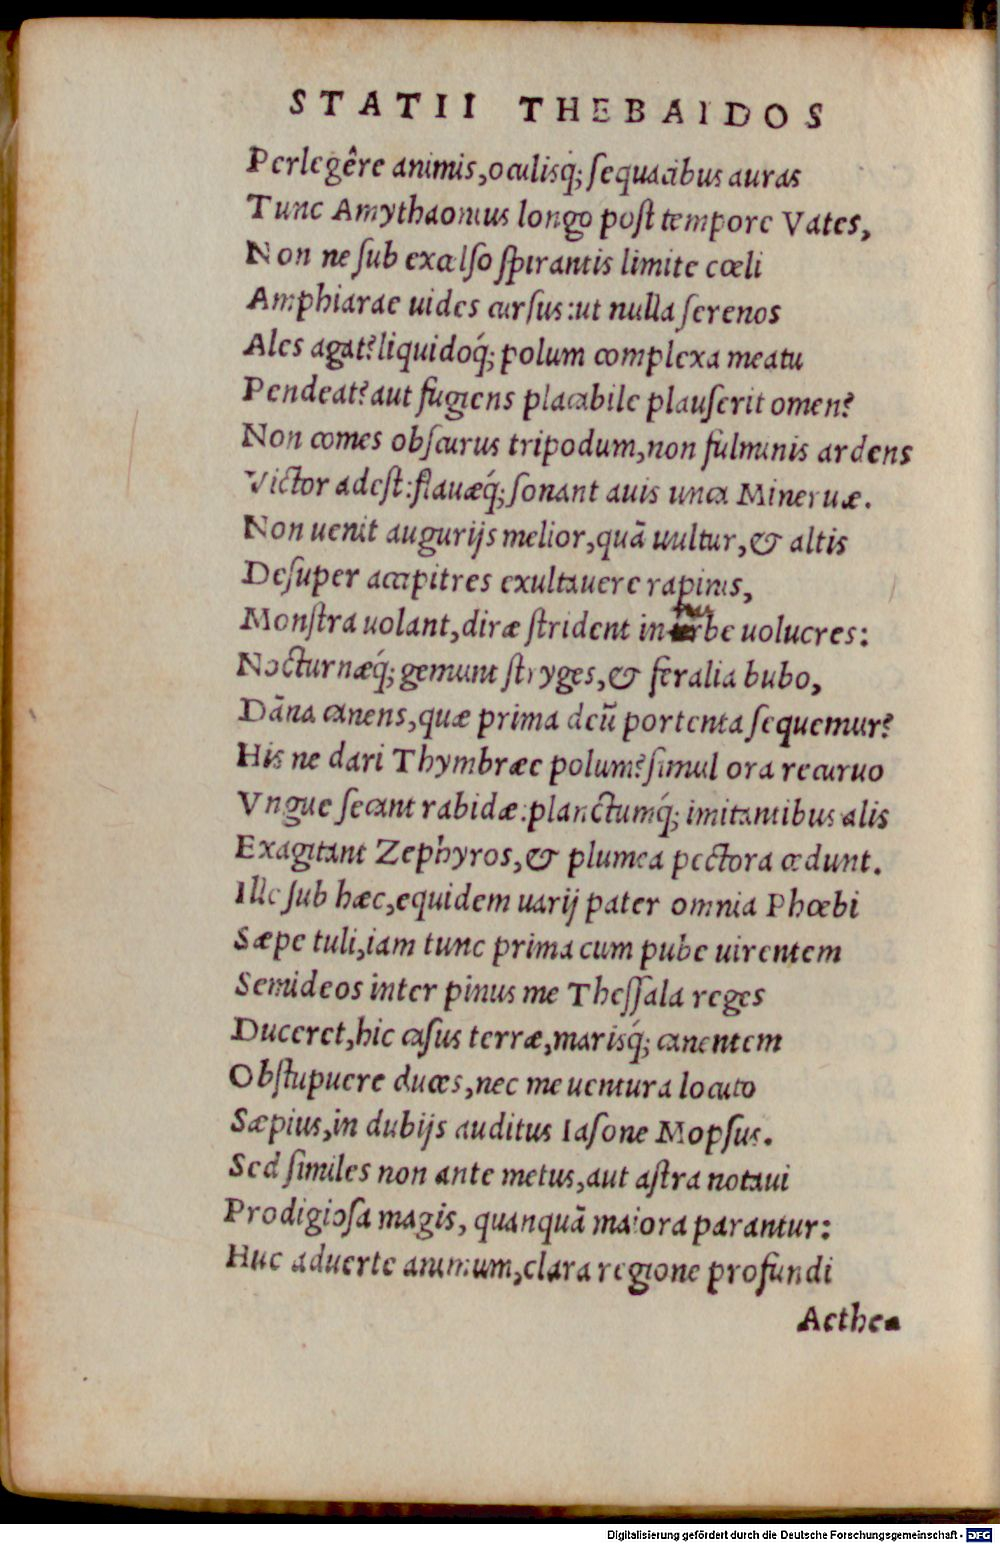 STATII THEBAIDOS
Perlegêre animis,oculisq́; ſequacibus auras
Tunc Amythaonius longo poſt tempore Vates,
Non ne ſub excelſo ſpirantis limite cœli
Amphiarae uides curſus:ut nulla ſerenos
Ales agat?liquidoq́; polum complexa meatu
Pendeat?aut fugiens placabile plauſerit omen?
Non comes obſcurus tripodum,non fulminis ardens
Victor adeſt:flauæq́; ſonant auis unca Mineruæ.
Non uenit augurijs melior,quā uultur,& altis
Deſuper accipitres exultauere rapinis,
Monſtra uolant,diræ ſtrident in urbe uolucres:
Nocturnæq́; gemunt ſtryges,& feralia bubo,
Dāna canens,quæ prima deū portenta ſequemur?
His ne dari Thymbræe polum?ſimul ora recuruo
Vngue ſecant rabidæ:planctumq́; imitantibus alis
Exagitant Zephyros,& plumea pectora cædunt.
Ille ſub hæc,equidem uarij pater omnia Phœbi
Sæpe tuli,iam tunc prima cum pube uirentem
Semideos inter pinus me Theſſala reges
Duceret,hic caſus terræ,marisq́; canentem
Obſtupuere duces,nec me uentura locuto
Sæpius,in dubijs auditus Iaſone Mopſus.
Sed ſimiles non ante metus,aut aſtra notaui
Prodigioſa magis, quanquā maiora parantur:
Huc aduerte animum,clara regione profundi
Aethe-
Digitalisierung gefördert durch die Deutsche Forschungsgemeinschaft - DFG